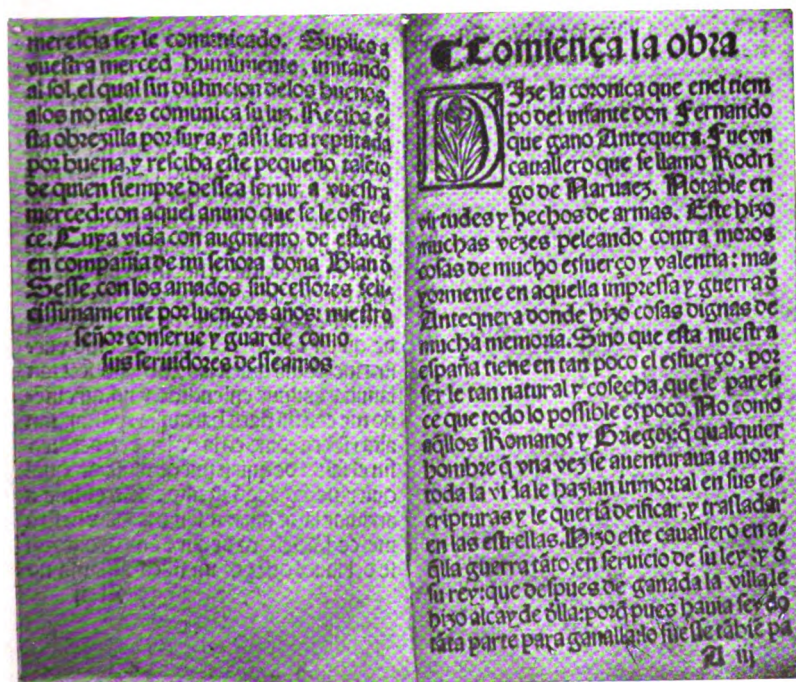 merescia ser le comunicado. Suplico a
vuestra merced humilmente, imitando
al sol, el qual sin distincion delos buenos,
alos no tales comunica su luz. Reciba e
sta obrezilla por suya, y assi sera reputada
por buena, y resciba este pequeño
de quien siempre dessea seruir a vuestra
merced: con aquel animo que se le offres
ce. Cuya vida con augmento de estado
en compañia de mi señora dona Blan
Sesse, con los amados subcessores feli
cissimamente por luengos años: nuestro
señor conserue y guarde como
sus seruidores desseamos
Comiença la obra
DIze la coronica que enel tiem
po del infante don Fernando
que gano Antequera. Fue vn
cauallero que se llamo Rodri
go de Naruaez. Notable en
virtudes y hechos de armas. Este hizo
muchas vezes peleando contra moros
cosas de mucho esfuerço y valentia: ma-
yormente en aquella impressa y guerra đ
Anteqnera donde hizo cosas dignas de
mucha memoria. Sino que esta nuestra
españa tiene en tan poco el esfuerço, por
ser le tan natural y cosecha, que le pares-
ce que todo lo possible es poco. No como
aq̃llos Romanos y Griegos: q̃ qualquier
hombre q̃ vna vez se auenturaua a morir
toda la vida le hazian inmortal en sus es-
cripturas y le queriã deificar, y trasladar
en las estrellas. Hizo este cauallero en a-
q̃lla guerra tãto, en seruicio de su ley: y đ
su rey: que despues de ganada la villa le
hizo alcayde đlla: porq̃ pues hauia sey do
tãta parte para ganalla: lo fuesse tãbiẽ pa
A iij